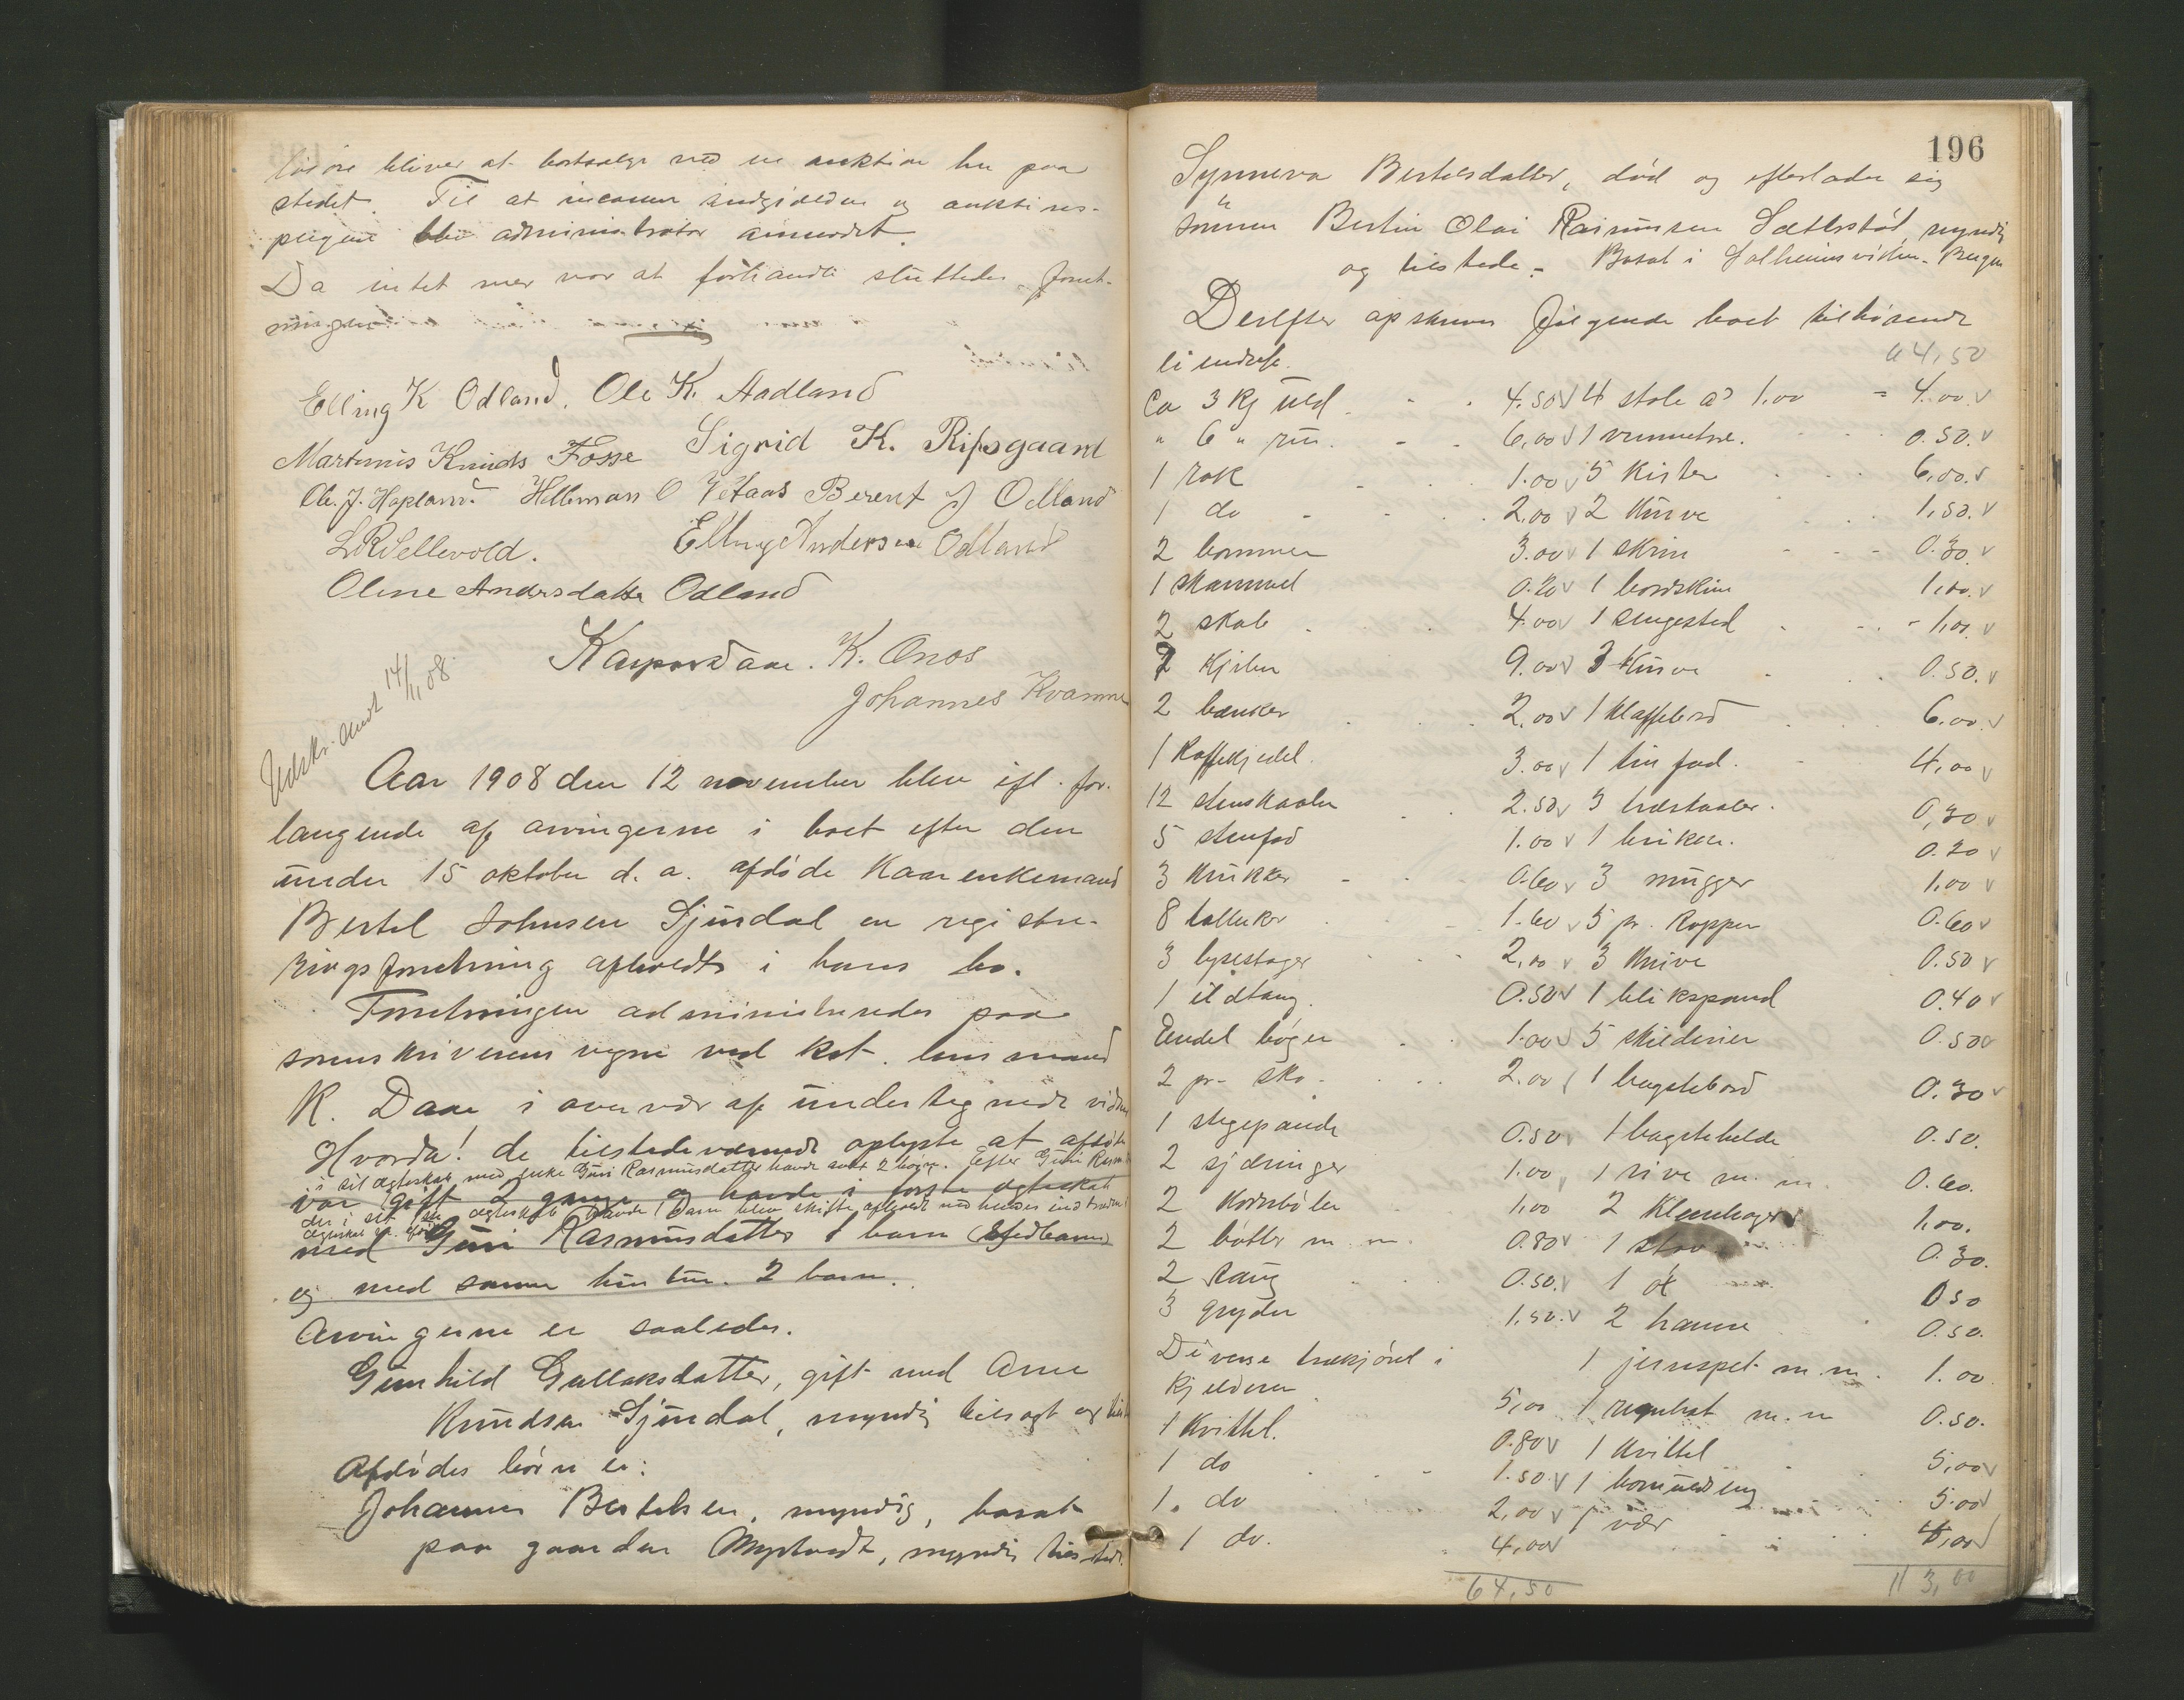 løsøre bliver at bortsælge ved en auktion her paa
stedet. Til at indgjælden og auktions-
pengene blev administrator
Da intet mer var at forhandle sluttedes forret-
ningen.
Elling K Odland. Ole K. Aadland
Martinus Knuds Fosse Sigrid K. Ripsgaard
Ole. J. Hopland. Helleman O Vetaas Berent J Odland
L R Sellevold. Elling Andersen Odland
Oline Andersdatter Odland
Kaspar Daae. K. Onos
Johannes Kvamme
Udskr. sendt 14/11 08.
Aar 1908 den 12 november blev efl. for-
langende af arvingerne i boet efter den
under 15 oktober d. a. afdøde Kaarenkemand
Bertel Johnsen Gjindal en registre-
ringsforretning afholdt i hans bo.
Forretningen administreredes paa
sorenskriverens vegne ved kst. lensmand
K. Daae i overvær af undertegnede vidner
Hvorda! de tilstedeværende oplyste at afdøde
i sit ægteskab med enke Guri Rasmusdatter havde 2 børn. Efter Guri
var gift 2 gange og havde i første ægteskab
der i sit ægteskab havde 1 Barn blev skifte afholdt med hendes
med Guri Rasmusdatter 1 barn (Stedbarn)
og med samme hustru. 2 barn.
Arvingerne er saaledes.
Gunhild Gullaksdatter, gift med Arne
Knudsen Gjindal, myndig tilsagt og
Afdødes børn er:
Johannes Bertelsen, myndig, bosat
paa gaarden Myrtvedt, myndig tilstede.
196
Synneva Bertelsdatter, død og efterlader sig
sønnen Bertin Olai Rasmusen Sætterstøl, myndig
og tilstede. - Bosat i Solheimsviken. Bergen
Derefter opskreves følgende boet tilhørende
64,50
Ca 3 Kg uld 4.50 v 4 stole a 1,00 = 4.00. v
" 6 " 6,00 v 1 0.50. v
1 rok 1.00 v 5 Kister 6,00. v
1 do 2,00 v 2 Kurve 1,50. v
2 kommer 3.00 v 1 skrin 0.30. v
1 skammel 0.20 v 1 bordskiva 1,00. v
2 skab 4.00 v 1 sengested 1,00. v
2 Kjister 9.00 v 3 Kurve 0.50. v
2 bænker 2,00 v 1 Klaffebord 6.00. v
1 Kaffekjedel 3.00 v 1 tin fad. 4,00 v
12 stenskaaler 2.50 v 3 træskaaler. 0,30 v
5 stenfad 1.00 v 1 0.20 v
3 Krukker 0.60 v 3 mugger 1,00 v
8 talleker 1.60 v 5 pr. Kopper 0.60 v
3 lysestager 2,00 v 3 Knive 0.50 v
1 ildtang 0.50 v 1 blikspand 0.40 v
Endel bøger 1.00 v 5 skilderier 0.50
2 pr. sko 2.00 1 bagstebord 0.30 v
1 stegepande 0.50 v 1 bagstehelde 0.50.
2 1.00 1 rive m. m. 0.60.
2 1,00 2 1,00.
2 bøtter m. m. 0.80 v 1 0.30.
2 0.50. v 1 0.50
3 gryder 1,50. v 2 hamre 0.50.
Diverse trækjørel i 1 jernspet m. m. 1.00
Kjelderen 5,00 1 m. m 0.50.
1 Kvittel. 0.80 v 1 Kvittel 5,00 v
1 do 1.50. v 1 5.00
1. do 2,00 v 1 vær
1 do. 4,00
64,50 113,00